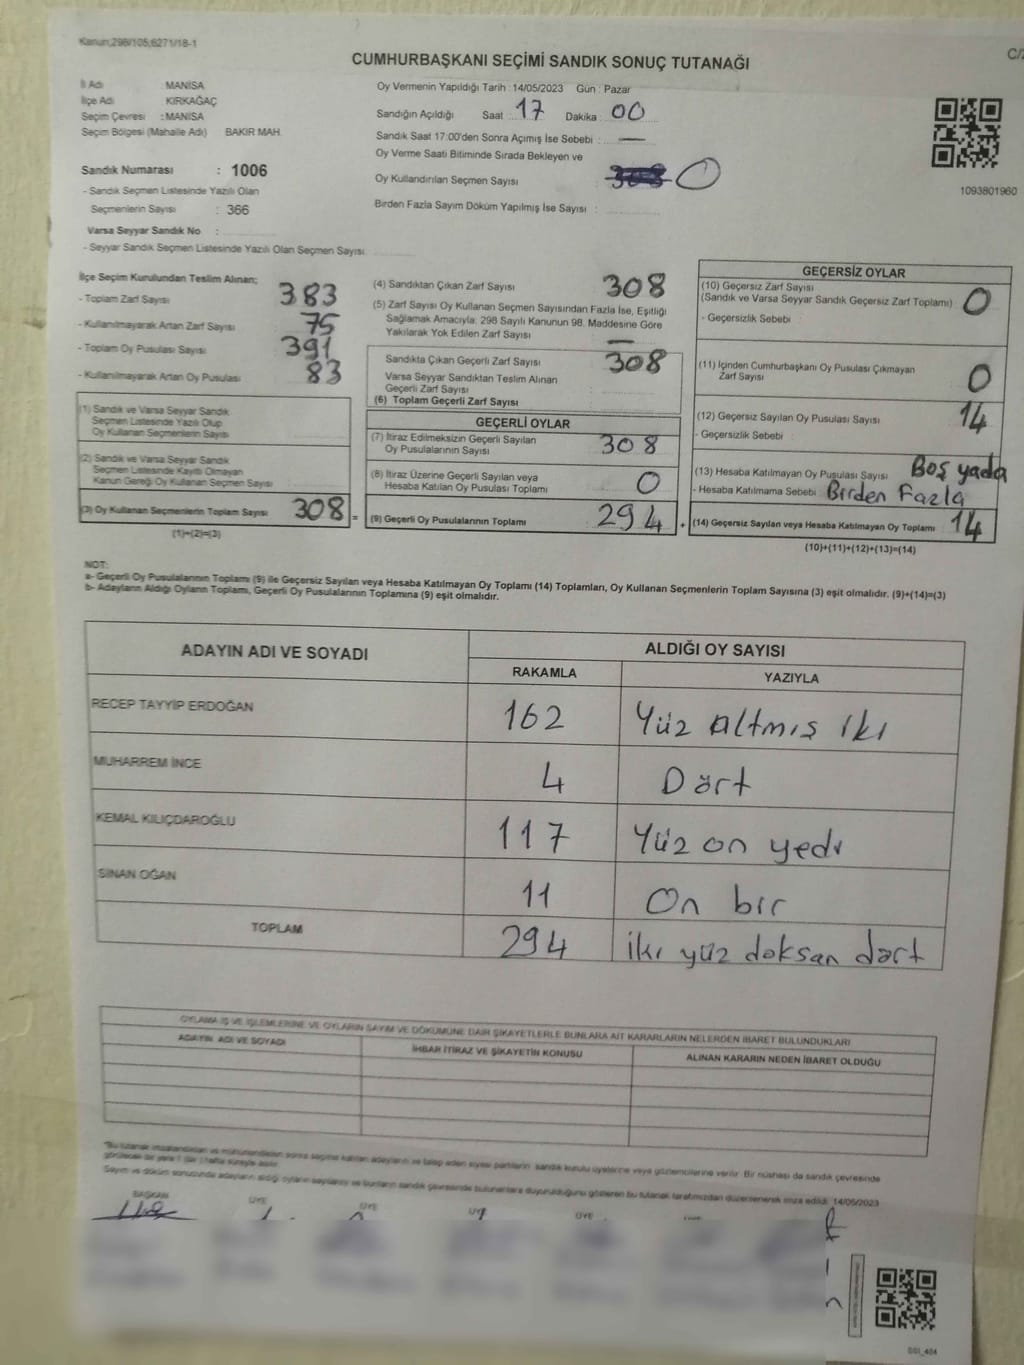 Kanun;298/105;6271/18-1
C/2
CUMHURBAŞKANI SEÇİMİ SANDIK SONUÇ TUTANAĞI
İl Adı : MANİSA
İlçe Adı : KIRKAĞAÇ
Seçim Çevresi : MANİSA
Seçim Bölgesi (Mahalle Adı) BAKIR MAH.
Sandık Numarası : 1006
- Sandık Seçmen Listesinde Yazılı Olan
Seçmenlerin Sayısı : 366
Varsa Seyyar Sandık No :
- Seyyar Sandık Seçmen Listesinde Yazılı Olan Seçmen Sayısı
Oy Vermenin Yapıldığı Tarih : 14/05/2023 Gün : Pazar
Sandığın Açıldığı Saat : 17 Dakika : 00
Sandık Saat 17:00'den Sonra Açımış İse Sebebi : —
Oy Verme Saati Bitiminde Sırada Bekleyen ve
Oy Kullandırılan Seçmen Sayısı : 0
Birden Fazla Sayım Döküm Yapılmış İse Sayısı :
1093801960
İlçe Seçim Kurulundan Teslim Alınan;
- Toplam Zarf Sayısı 383
- Kullanılmayarak Artan Zarf Sayısı 75
- Toplam Oy Pusulası Sayısı 391
- Kullanılmayarak Artan Oy Pusulası 83
(1) Sandık ve Varsa Seyyar Sandık
Seçmen Listesinde Yazılı Olup
Oy Kullanan Seçmenlerin Sayısı
(2) Sandık ve Varsa Seyyar Sandık
Seçmen Listesinde Kayıtlı Olmayan
Kanun Gereği Oy Kullanan Seçmen Sayısı
(3) Oy Kullanan Seçmenlerin Toplam Sayısı 308 =
(1)+(2)=(3)
(4) Sandıktan Çıkan Zarf Sayısı 308
(5) Zarf Sayısı Oy Kullanan Seçmen Sayısından Fazla İse, Eşitliği
Sağlamak Amacıyla; 298 Sayılı Kanunun 98. Maddesine Göre
Yakılarak Yok Edilen Zarf Sayısı —
Sandıkta Çıkan Geçerli Zarf Sayısı 308
Varsa Seyyar Sandıktan Teslim Alınan
Geçerli Zarf Sayısı
(6) Toplam Geçerli Zarf Sayısı
GEÇERLİ OYLAR
(7) İtiraz Edilmeksizin Geçerli Sayılan
Oy Pusulalarının Sayısı 308
(8) İtiraz Üzerine Geçerli Sayılan veya
Hesaba Katılan Oy Pusulası Toplamı 0
(9) Geçerli Oy Pusulalarının Toplamı 294 +
GEÇERSİZ OYLAR
(10) Geçersiz Zarf Sayısı
(Sandık ve Varsa Seyyar Sandık Geçersiz Zarf Toplamı) 0
- Geçersizlik Sebebi :
(11) İçinden Cumhurbaşkanı Oy Pusulası Çıkmayan
Zarf Sayısı 0
(12) Geçersiz Sayılan Oy Pusulası Sayısı 14
- Geçersizlik Sebebi :
(13) Hesaba Katılmayan Oy Pusulası Sayısı Boş yada
- Hesaba Katılmama Sebebi Birden Fazla
(14) Geçersiz Sayılan veya Hesaba Katılmayan Oy Toplamı 14
(10)+(11)+(12)+(13)=(14)
NOT:
a- Geçerli Oy Pusulalarının Toplamı (9) ile Geçersiz Sayılan veya Hesaba Katılmayan Oy Toplamı (14) Toplamları, Oy Kullanan Seçmenlerin Toplam Sayısına (3) eşit olmalıdır. (9)+(14)=(3)
b- Adayların Aldığı Oyların Toplamı, Geçerli Oy Pusulalarının Toplamına (9) eşit olmalıdır.
ADAYIN ADI VE SOYADI
ALDIĞI OY SAYISI
RAKAMLA YAZIYLA
RECEP TAYYİP ERDOĞAN 162 Yüz Altmış iki
MUHARREM İNCE 4 Dört
KEMAL KILIÇDAROĞLU 117 Yüz on yedi
SİNAN OĞAN 11 On bir
TOPLAM 294 iki yüz doksan dört
OYLAMA İŞ VE İŞLEMLERİNE VE OYLARIN SAYIM VE DÖKÜMÜNE DAİR ŞİKAYETLERLE BUNLARA AİT KARARLARIN NELERDEN İBARET BULUNDUKLARI
ADAYIN ADI VE SOYADI İHBAR İTİRAZ VE ŞİKAYETİN KONUSU ALINAN KARARIN NEDEN İBARET OLDUĞU
*Bu tutanak imzalandıktan ve mühürlendikten sonra seçime katılan adayların ve talep eden siyasi partilerin sandık kurulu üyelerine veya gözlemcilerine verilir. Bir nüshası da sandık çevresinde
görülecek bir yere 1 (bir) hafta süreyle asılır.
Sayım ve döküm sonucunda adayların aldığı oyların sayılarını ve bunların sandık çevresinde bulunanlara duyurulduğunu gösteren bu tutanak tarafımızdan düzenlenerek imza edildi. 14/05/2023
BAŞKAN ÜYE ÜYE ÜYE ÜYE